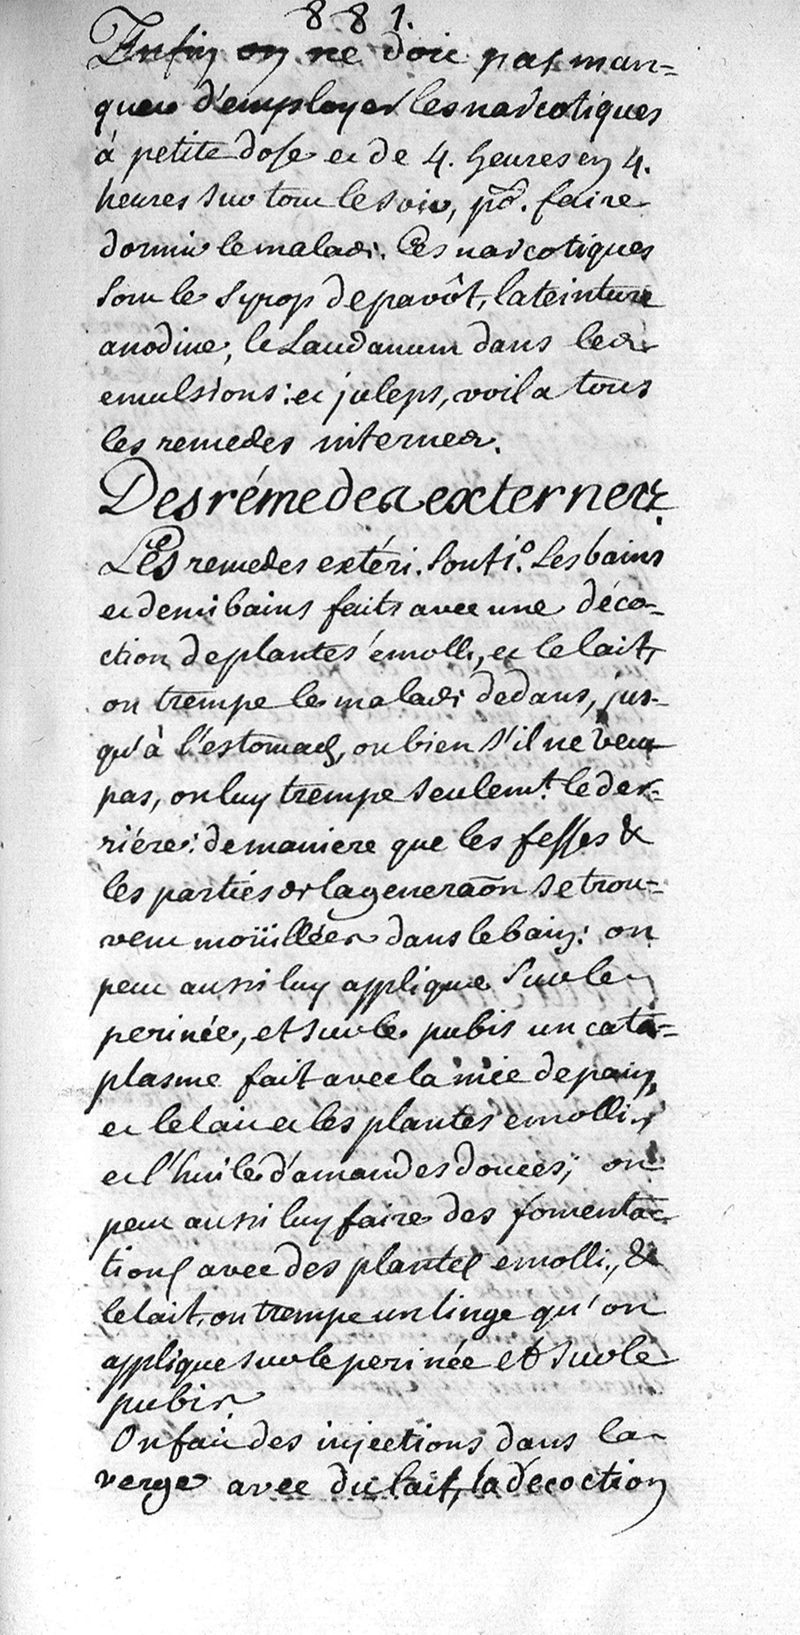 881.
Enfin on ne doit pas man=
quer d'employer les narcotiques
à petite dose et de 4. heures en 4.
heures sur tout le soir, pr. faire
dormir le malade. Ces narcotiques
sont le syrop de pavôt, la teinture
anodine, le Laudanum dans les
emulsions: et juleps, voila tous
les remedes internes.
Des rémedes externes.
Les remedes extéri. sont 1.º Les bains
et demi bains faits avec une déco=
ction de plantes émolli, et le lait,
on trempe les malades dedans, jus=
qu'à l'estomach, ou bien s'il ne veut
pas, on luy trempe seulemt. le der=
riére: de maniere que les fesses &
les parties de la generaōn se trou=
vent moüillées dans le bain: on
peut aussi luy applique sur le
perinée, et sur le pubis un cata=
plasme fait avec la mie de pain,
et le lait et les plantes emolli.,
et l'huile d'amandes douces; on
peut aussi luy faire des fomenta=
tions avec des plantes emolli., &
le lait, on trempe un linge qu'on
applique sur le perinée et sur le
pubis.
On fait des injections dans la
verge avec du lait, la décoction